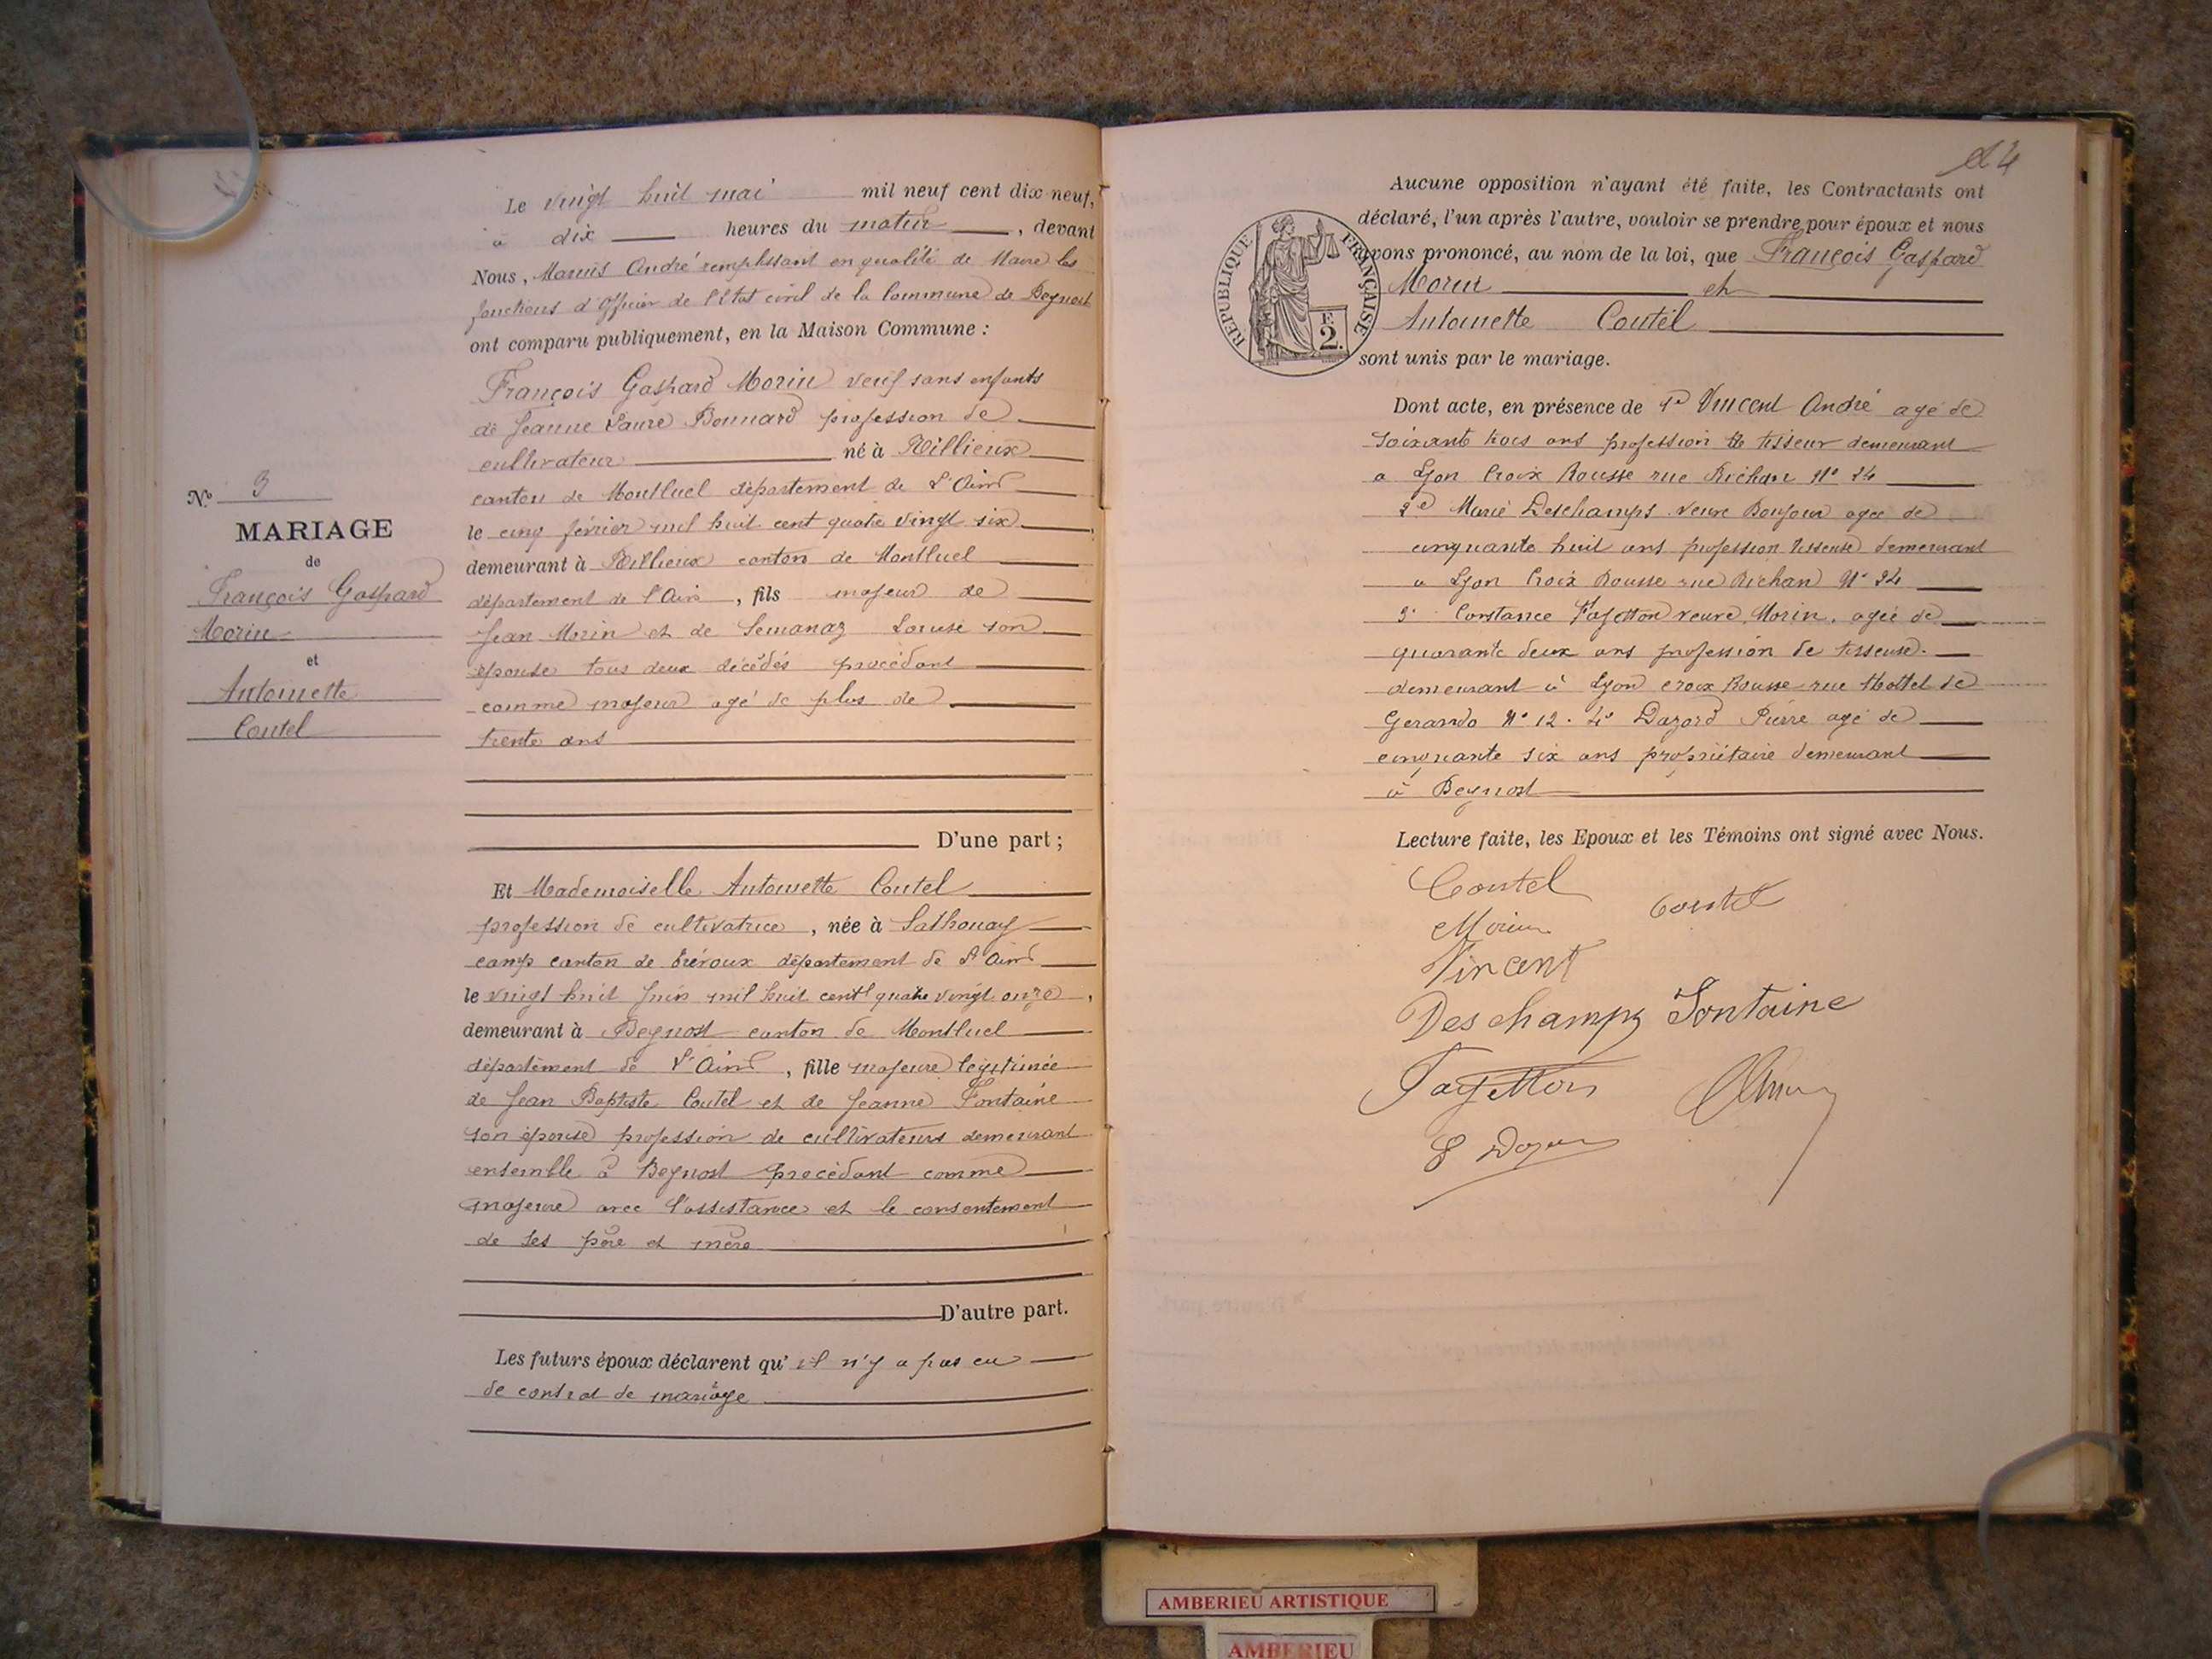 Le vingt huit mai mil neuf cent dix-neuf,
à dix heures du matin, devant
Nous, Marius André remplissant en qualité de Maire les
fonctions d'Officier de l'Etat civil de la Commune de Beynost
ont comparu publiquement, en la Maison Commune :
François Gaspard Morin veuf sans enfants
de Jeanne Laure Bonnard profession de
cultivateur né à Rillieux
canton de Montluel département de L'Ain
le cinq février mil huit cent quatre vingt six
demeurant à Rillieux canton de Montluel
département de l'Ain, fils majeur de
Jean Morin et de Semanaz Louise son
épouse tous deux décédés procédant
comme majeur agé de plus de
trente ans
D'une part ;
No 3
MARIAGE
de
François Gaspard
Morin
et
Antoinette
Coutel
Et Mademoiselle Antoinette Coutel
profession de cultivatrice, née à Sathonay
camp canton de Trévoux département de L'Ain
le vingt huit Juin mil huit cent quatre vingt onze,
demeurant à Beynost canton de Montluel
département de L'Ain, fille majeure légitimée
de Jean Baptiste Coutel et de Jeanne Fontaine
son épouse profession de cultivateurs demeurant
ensemble à Beynost procédant comme
majeure avec l'assistance et le consentement
de ses père et mère
D'autre part.
Les futurs époux déclarent qu'il n'y a pas eu
de contrat de mariage
Aucune opposition n'ayant été faite, les Contractants ont
déclaré, l'un après l'autre, vouloir se prendre pour époux et nous
avons prononcé, au nom de la loi, que François Gaspard
Morin et
Antoinette Coutel
sont unis par le mariage.
REPUBLIQUE FRANÇAISE
F.
2.
Dont acte, en présence de 1e Vincent André agé de
soixante trois ans profession de tisseur demeurant
a Lyon Croix Rousse rue Richan No 24
2e Marie Deschamps veuve Bonjour agée de
cinquante huit ans profession tisseuse demeurant
a Lyon Croix Rousse rue Richan No 24
3e Constance Fayetton veuve Morin, agée de
quarante deux ans profession de tisseuse.
demeurant à Lyon croix Rousse rue Mottet de
Gerando No 12. 4e Dazord Pierre agé de
cinquante six ans propriétaire demeurant
à Beynost
Lecture faite, les Epoux et les Témoins ont signé avec Nous.
Coutel
Coutel
Morin
Vincent
Deschamps Fontaine
Fayetton
AMBERIEU ARTISTIQUE
AMBERIEU